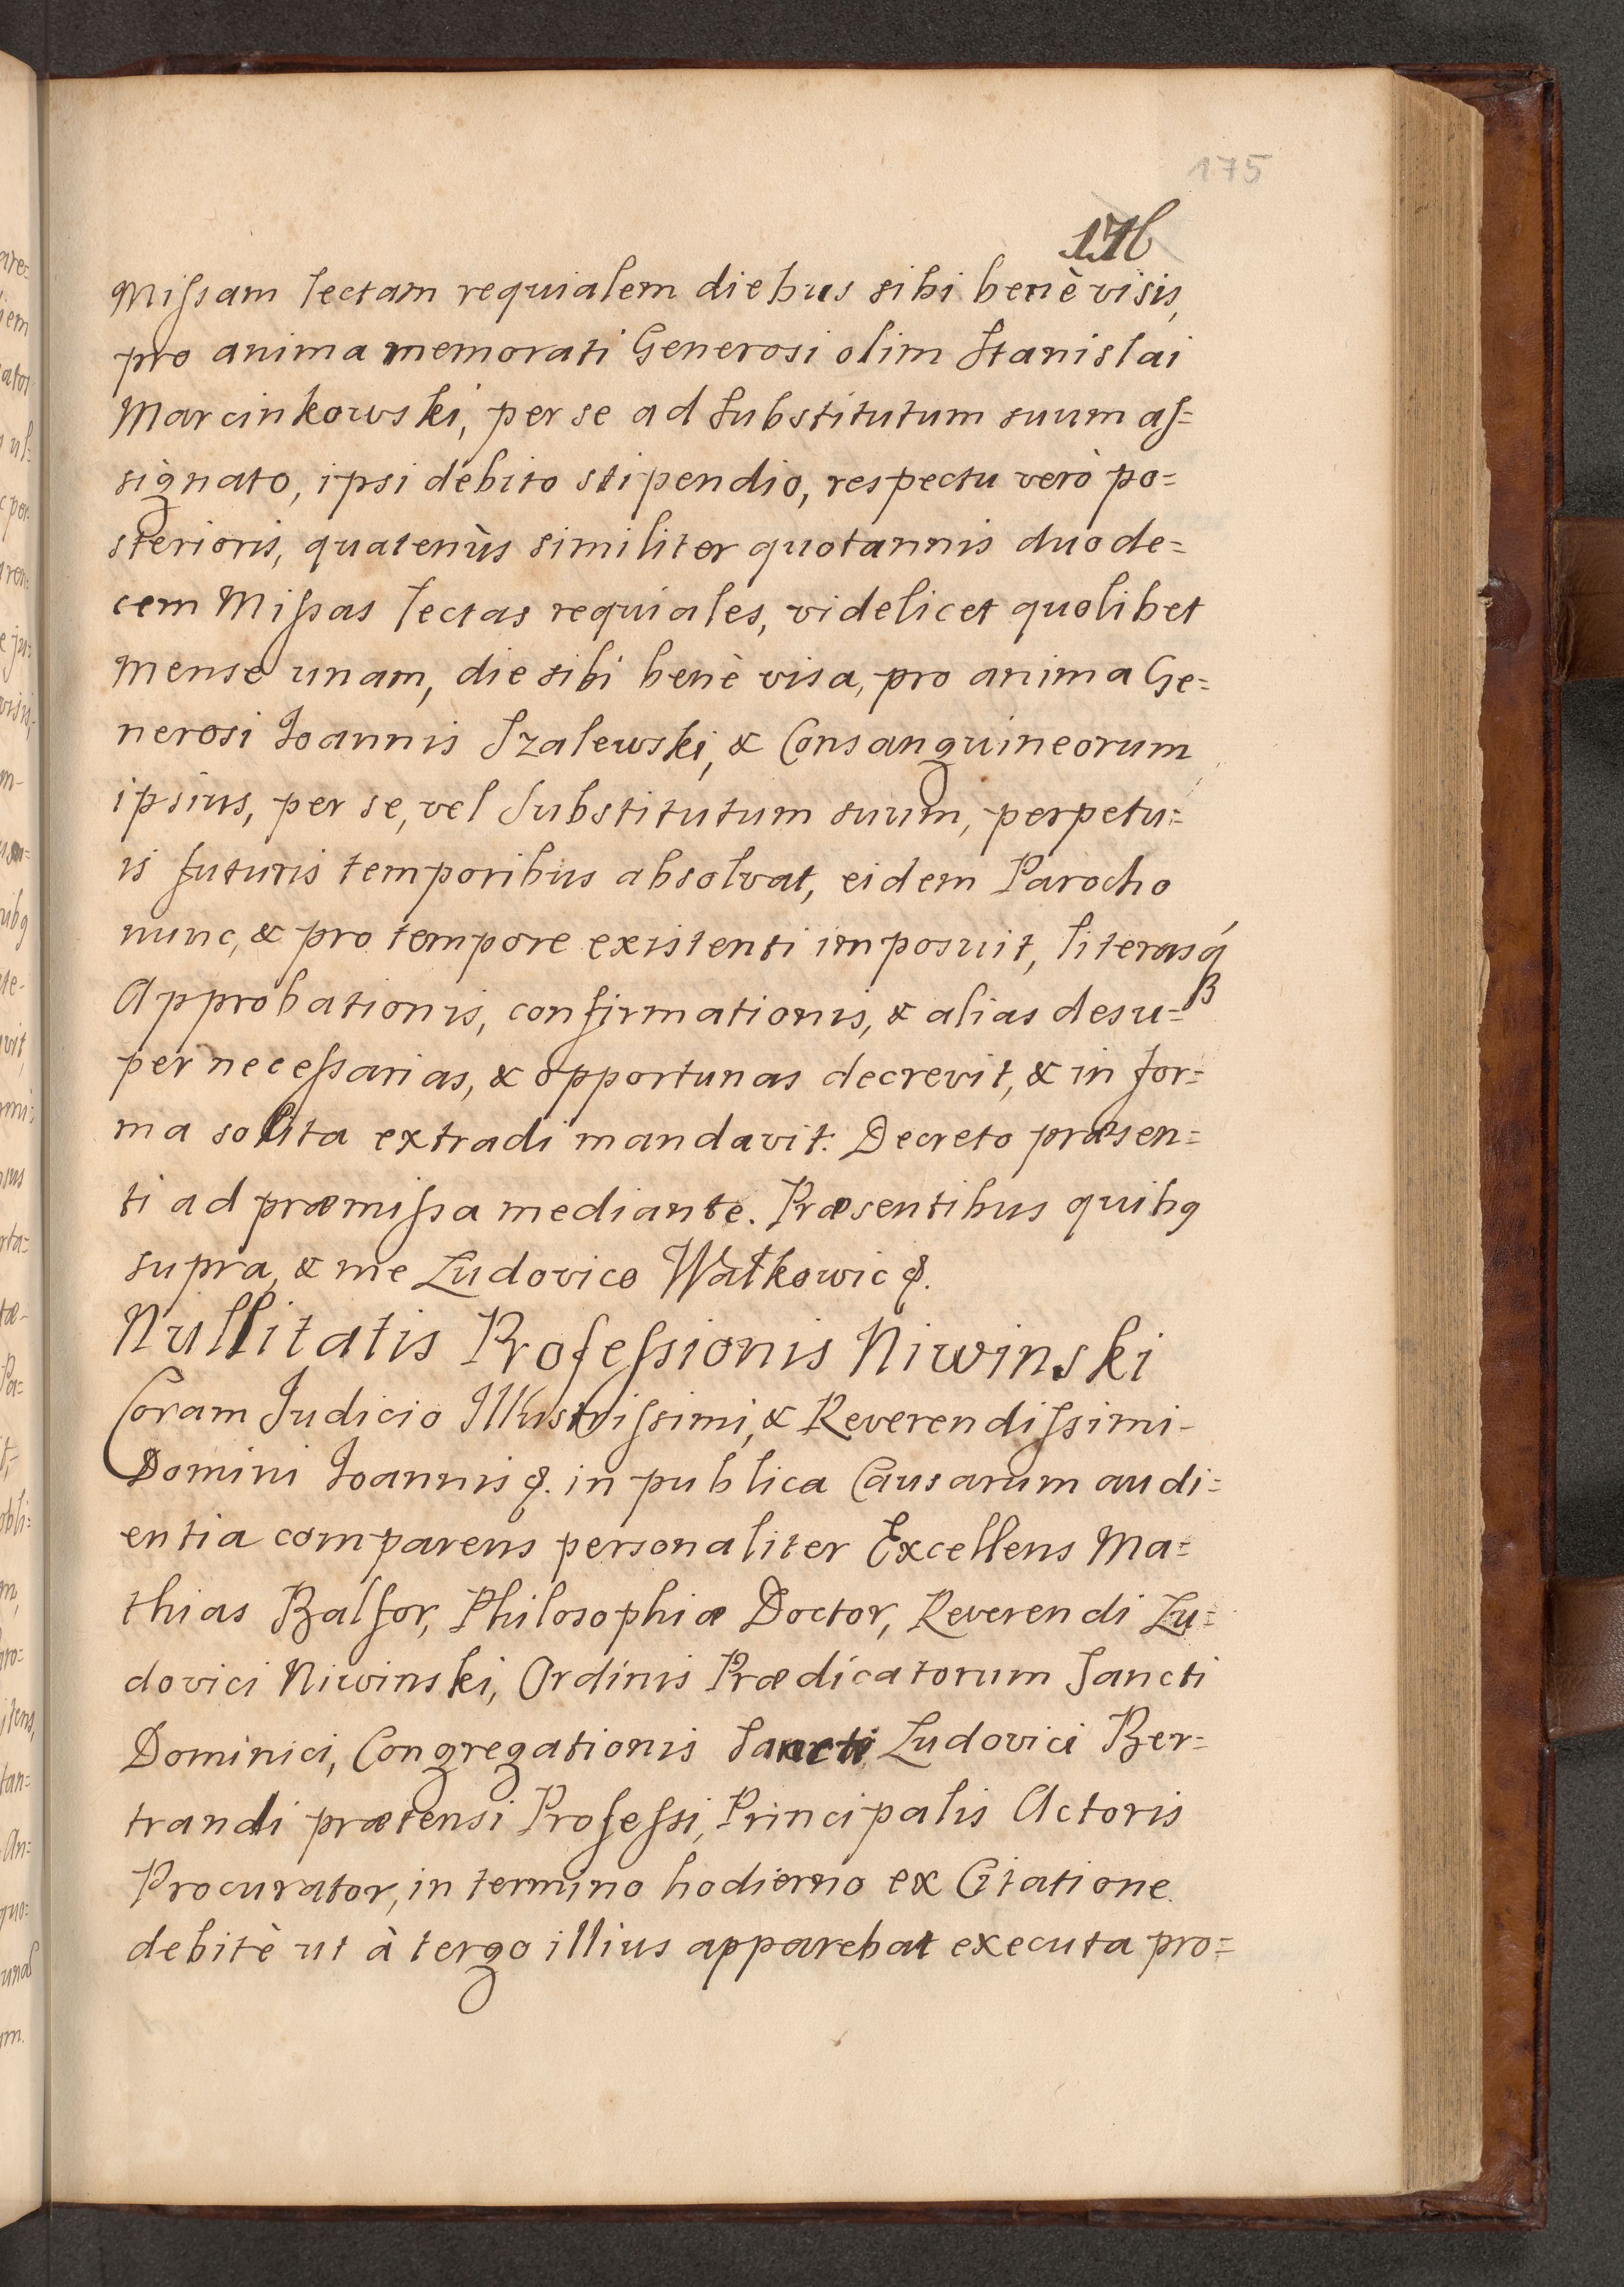 175
176
Missam lectam requialem diebus sibi benè visis,
pro anima memorati Generosi olim Stanislai
Marcinkowski, per se ad Substitutum suum as=
signato, ipsi debito stipendio, respectu verò po=
sterioris, quatenùs similiter quotannis duode=
cem Missas lectas requiales, videlicet quolibet
mense unam, die sibi benè visa, pro anima Ge=
nerosi Joannis Szalewski, & Consanguineorum
ipsius, per se, vel Substitutum suum, perpetu=
is futuris temporibus absolvat, eidem Parocho
nunc, & pro tempore existenti imposuit, literasq́
Approbationis, confirmationis, & alias desu=
per necessarias, & opportunas decrevit, & in for=
ma solita extradi mandavit. Decreto præsen=
ti ad præmissa mediante. Præsentibus quibꝯ
supra, & me Ludovico Wałkowic &.
Nullitatis Professionis Niwinski
Coram Judicio Illustrissimi, & Reverendissimi-
Domini Joannis &. in publica Causarum audi=
entia comparens personaliter Excellens Ma=
thias Balfor, Philosophiæ Doctor, Reverendi Lu=
dovici Niwinski, Ordinis Prædicatorum Sancti
Dominici, Congregationis Sancti Ludovici Ber=
trandi prætensi Professi, Principalis Actoris
Procurator, in termino hodierno ex Citatione
debitè ut à tergo illius apparebat executa pro=